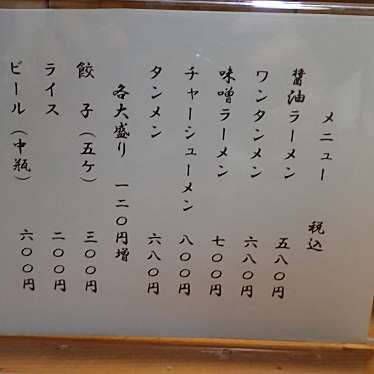 メニュー 税込
醤油ラーメン 五八〇円
ワンタンメン 六八〇円
味噌ラーメン 七〇〇円
チャーシューメン 八〇〇円
タンメン 六八〇円
各大盛り 一二〇円増
餃子(五ケ) 三〇〇円
ライス 二〇〇円
ビール(中瓶) 六〇〇円